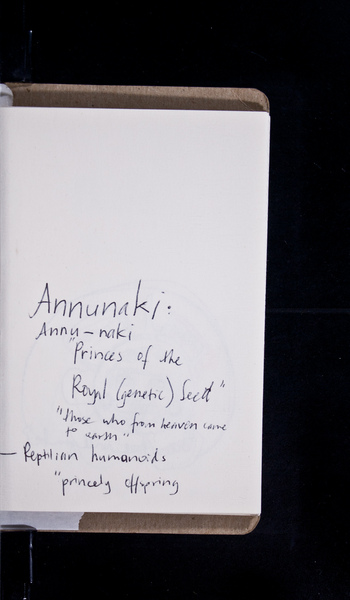 Annunaki:
Annu-naki
"Princes of the
Royal (genetic) Seed"
"those who from heaven came
to earth"
- Reptilian humanoids
"princely offspring